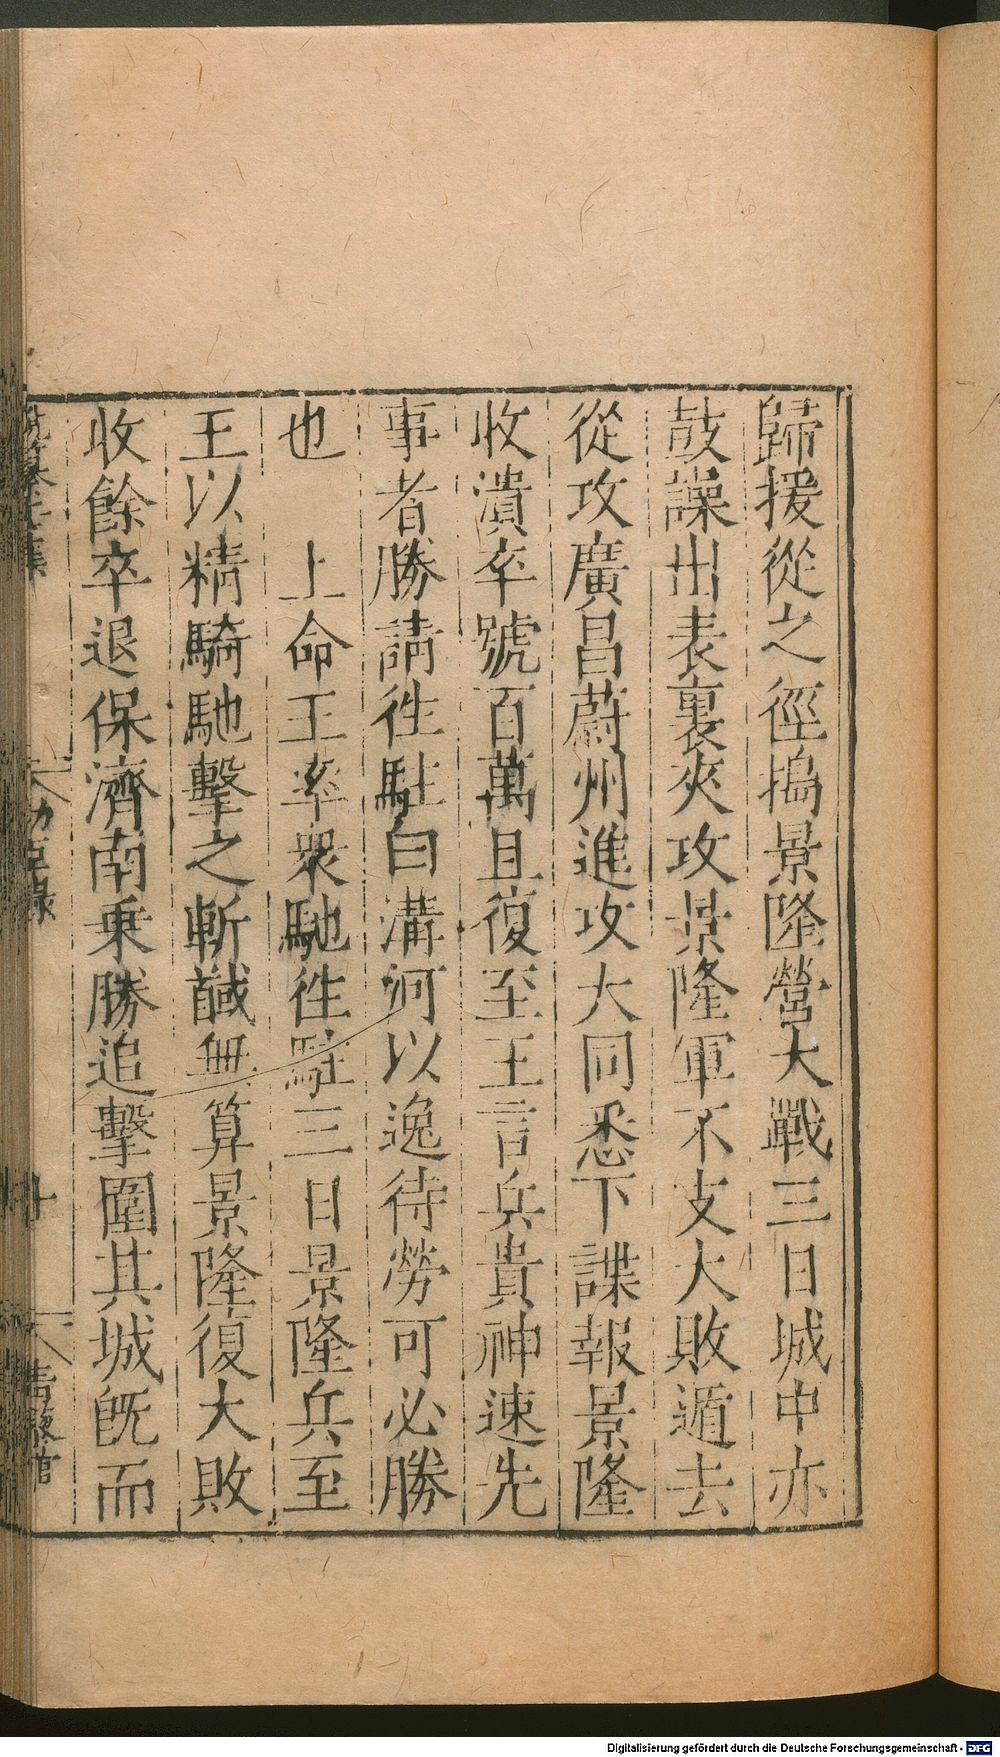 歸援從之徑搗景隆營大戰三日城中亦
鼓譟出表裏夾攻景隆軍不支大敗遁去
從攻廣昌蔚州進攻大同悉下諜報景隆
收潰卒號百萬且復至王言兵貴神速先
事者勝請徃駐白溝河以逸待勞可必勝
也　上命王率衆馳徃駐三日景隆兵至
王以精騎馳擊之斬馘無算景隆復大敗
收餘卒退保濟南乗勝追擊圍其城旣而
十
Digitalisierung gefördert durch die Deutsche Forschungsgemeinschaft - DFG